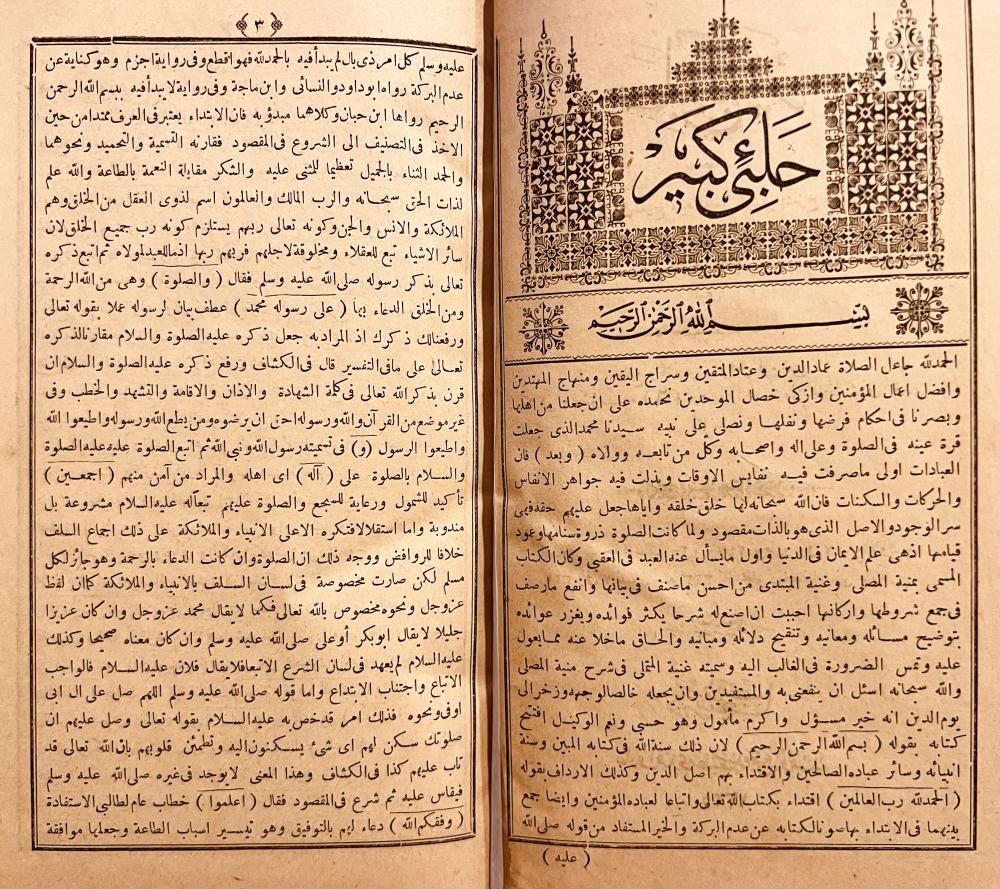 حلبئ كبير
بسم الله الرحمن الرحيم
الحمد لله جاعل الصلاة عماد الدين وعتاد المتقين وسراج اليقين ومنهاج المهتدين
وافضل اعمال المؤمنين وازكى خصال الموحدين نحمده على ان جعلنا من اهلها
وبصرنا فى احكام فرضها ونفلها ونصلى على نبيه سيدنا محمد الذى جعلت
قرة عينه فى الصلوة وعلى اله واصحابه وكل من تابعه ووالاه ( وبعد ) فان
العبادات اولى ماصرفت فيه نفايس الاوقات وبذلت فيه جواهر الانفاس
والحركات والسكنات فان الله سبحانه لها خلق خلقه واياها جعل عليهم حقه فهى
سر الوجود والاصل الذى هو بالذات مقصود ولما كانت الصلوة ذروة سنامها وعمود
قيامها اذهى علم الايمان فى الدنيا واول مايسأل عنه العبد فى العقبى وكان الكتاب
المسمى بمنية المصلى وغنية المبتدى من احسن ماصنف فى بيانها وانفع مارصف
فى جمع شروطها واركانها احببت ان اصنع له شرحا يكثر فوائده ويغزر عوائده
بتوضيح مسائله ومعانيه وتنقيح دلائله ومبانيه والحاق ماخلا عنه مما يعول
عليه وتمس الضرورة فى الغالب اليه وسميته غنية المتملى فى شرح منية المصلى
والله سبحانه اسئل ان ينفعنى به والمستفيدين وان يجعله خالصا لوجهه وزخرا لى
يوم الدين انه خير مسؤل واكرم مأمول وهو حسبى ونعم الوكيل افتتح
كتابه بقوله ( بسم الله الرحمن الرحيم ) لان ذلك سنة الله فى كتابه المبين وسنة
انبيائه وسائر عباده الصالحين والاقتداء بهم اصل الدين وكذلك الارداف بقوله
( الحمد لله رب العالمين ) اقتداء بكتاب الله تعالى واتباعا لعباده المؤمنين وايضا جمع
بينهما فى الابتداء بها صونا لكتابه عن عدم البركة والخير المستفاد من قوله صلى الله
( عليه )
٣
عليه وسلم كل امر ذى بال لم يبدأ فيه بالحمد لله فهو اقطع وفى رواية اجزم وهو كناية عن
عدم البركة رواه ابو داود والنسائى وابن ماجة وفى رواية لا يبدأ فيه ببسم الله الرحمن
الرحيم رواها ابن حبان وكلاهما مبدؤ به فان الابتداء يعتبر فى العرف ممتدا من حين
الاخذ فى التصنيف الى الشروع فى المقصود فقارنه التسمية والتحميد ونحوهما
والحمد الثناء بالجميل تعظيما للمثنى عليه والشكر مقابلة النعمة بالطاعة والله علم
لذات الحق سبحانه والرب المالك والعالمون اسم لذوى العقل من الخلق وهم
الملائكة والانس والجن وكونه تعالى ربهم يستلزم كونه رب جميع الخلق لان
سائر الاشياء تبع للعقلاء ومخلوقة لاجلهم فربهم ربها اذ ما للعبد لمولاه ثم اتبع ذكره
تعالى بذكر رسوله صلى الله عليه وسلم فقال ( والصلوة ) وهى من الله الرحمة
ومن الخلق الدعاء بها ( على رسوله محمد ) عطف بيان لرسوله عملا بقوله تعالى
ورفعنا لك ذكرك اذ المراد به جعل ذكره عليه الصلوة والسلام مقارنا لذكره
تعالى على ما فى التفسير قال فى الكشاف ورفع ذكره عليه الصلوة والسلام ان
قرن بذكر الله تعالى فى كلمة الشهادة والاذان والاقامة والتشهد والخطب وفى
غير موضع من القرآن والله ورسوله احق ان يرضوه ومن يطع الله ورسوله واطيعوا الله
واطيعوا الرسول (و) فى تسميته رسول الله ونبى الله ثم اتبع الصلوة عليه عليه الصلوة
والسلام بالصلوة على ( آله ) اى اهله والمراد من آمن منهم ( اجمعين )
تأكيد للشمول ورعاية للسجع والصلوة عليهم تبعا له عليه السلام مشروعة بل
مندوبة واما استقلالا فتكره الا على الانبياء والملائكة على ذلك اجماع السلف
خلافا للروافض ووجه ذلك ان الصلوة وان كانت الدعاء بالرحمة وهو جائز لكل
مسلم لكن صارت مخصوصة فى لسان السلف بالانبياء والملائكة كما ان لفظ
عز وجل ونحوه مخصوص بالله تعالى فكما لا يقال محمد عز وجل وان كان عزيزا
جليلا لا يقال ابوبكر أو على صلى الله عليه وسلم وان كان معناه صحيحا وكذلك
عليه السلام لم يعهد فى لسان الشرع الا تبعا فلا يقال فلان عليه السلام فالواجب
الاتباع واجتناب الابتداع واما قوله صلى الله عليه وسلم اللهم صل على ال ابى
اوفى ونحوه فذلك امر قد خص به عليه السلام بقوله تعالى وصل عليهم ان
صلوتك سكن لهم اى شئ يسكنون اليه وتطمئن قلوبهم بان الله تعالى قد
تاب عليهم كذا فى الكشاف وهذا المعنى لا يوجد فى غيره صلى الله عليه وسلم
فيقاس عليه ثم شرع فى المقصود فقال ( اعلموا ) خطاب عام لطالبى الاستفادة
( وفقكم الله ) دعاء لهم بالتوفيق وهو تيسير اسباب الطاعة وجعلها موافقة